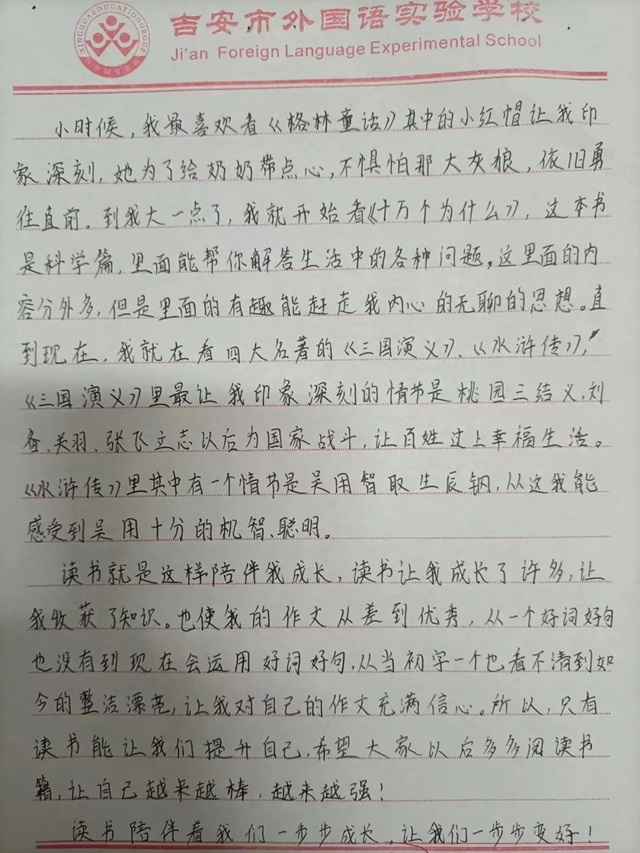 吉安市外国语实验学校
Ji'an Foreign Language Experimental School
小时候，我最喜欢看《格林童话》其中的小红帽让我印
象深刻，她为了给奶奶带点心，不惧怕那大灰狼，依旧勇
往直前。到我大一点了，我就开始看《十万个为什么》，这本书
是科学篇，里面能帮你解答生活中的各种问题，这里面的内
容分外多，但是里面的有趣能赶走我内心的无聊的思想。直
到现在，我就在看四大名著的《三国演义》、《水浒传》，
《三国演义》里最让我印象深刻的情节是桃园三结义，刘
备、关羽、张飞立志以后为国家战斗，让百姓过上幸福生活。
《水浒传》里其中有一个情节是吴用智取生辰钢，从这我能
感受到吴用十分的机智、聪明。
读书就是这样陪伴我成长，读书让我成长了许多，让
我收获了知识。也使我的作文从差到优秀，从一个好词好句
也没有到现在会运用好词好句，从当初字一个也看不清到如
今的整洁漂亮，让我对自己的作文充满信心。所以，只有
读书能让我们提升自己，希望大家以后多多阅读书
籍，让自己越来越棒，越来越强！
读书陪伴着我们一步步成长，让我们一步步变好！